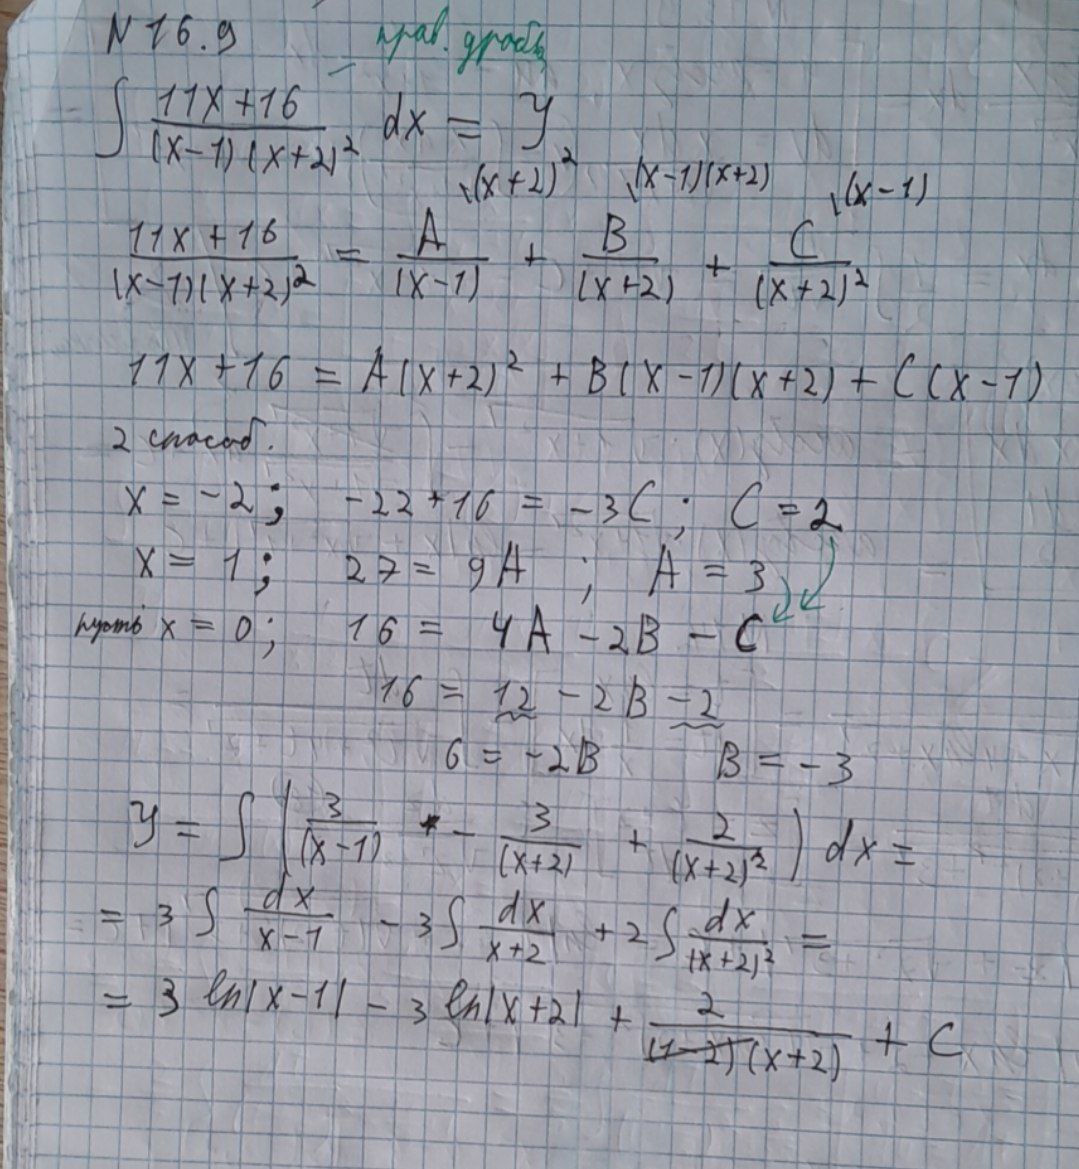 N 16.9 прав. дробь
∫ (11x+16)/((x-1)(x+2)²) dx = Y
\(x+2)² \(x-1)(x+2) \(x-1)
(11x+16)/((x-1)(x+2)²) = A/(x-1) + B/(x+2) + C/(x+2)²
11x+16 = A(x+2)² + B(x-1)(x+2) + C(x-1)
2 способ.
x = -2; -22+16 = -3C; C = 2
x = 1; 27 = 9A; A = 3
пусть x = 0; 16 = 4A - 2B - C
16 = 12 - 2B - 2
6 = -2B B = -3
Y = ∫ (3/(x-1) - 3/(x+2) + 2/(x+2)²) dx =
= 3 ∫ dx/(x-1) - 3 ∫ dx/(x+2) + 2 ∫ dx/(x+2)² =
= 3 ln|x-1| - 3 ln|x+2| + 2/((1-2)(x+2)) + C